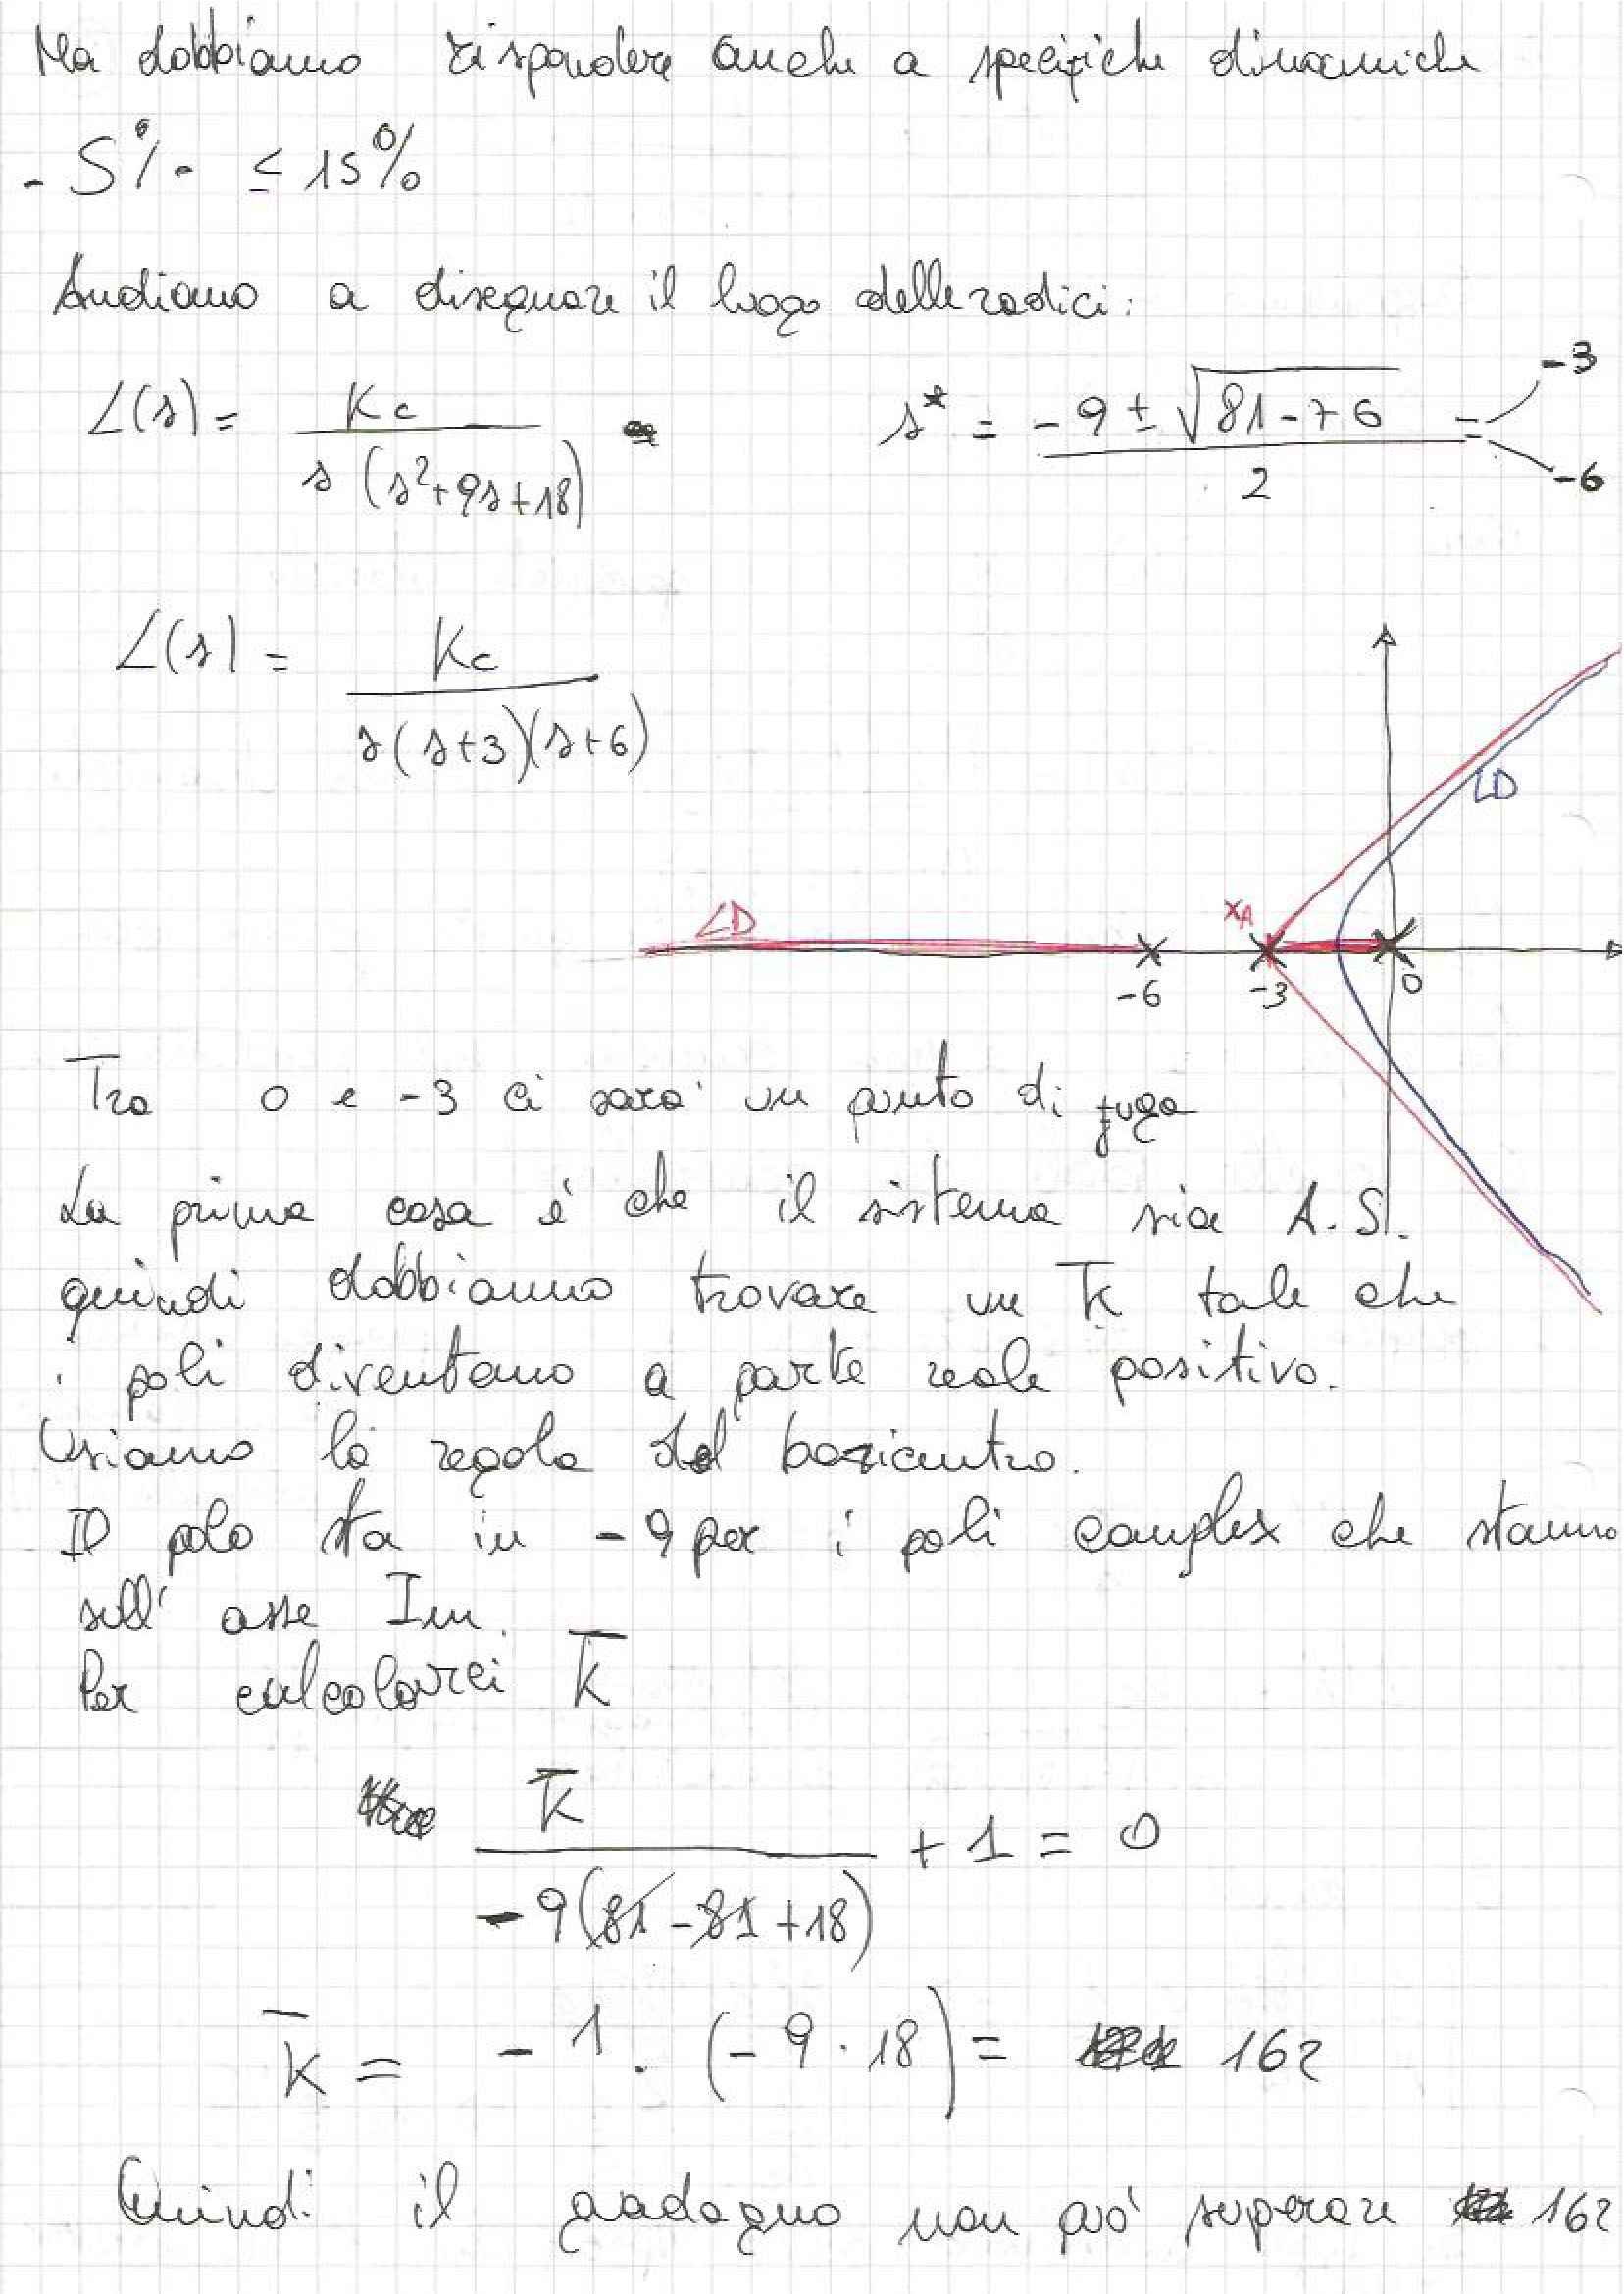 Ma dobbiamo rispondere anche a specifiche dinamiche
- S% ≤ 15%
Andiamo a disegnare il luogo delle radici:
L(s) = Kc / s(s²+9s+18)
s* = -9 ± √81-76 / 2 = -3 -6
L(s) = Kc / s(s+3)(s+6)
LD
LD
xA
-6 -3 0
Tra 0 e -3 ci sara' un punto di fuga
La prima cosa è che il sistema sia A.S.
quindi dobbiamo trovare un K̄ tale che
i poli diventano a parte reale positiva.
Usiamo la regola del baricentro.
Il polo sta in -9 per i poli complex che stanno
sull' asse Im.
Per calcolarci K̄
K̄ / -9(81-81+18) + 1 = 0
K̄ = -1 · (-9·18) = 162
Quindi il guadagno non può superare 162